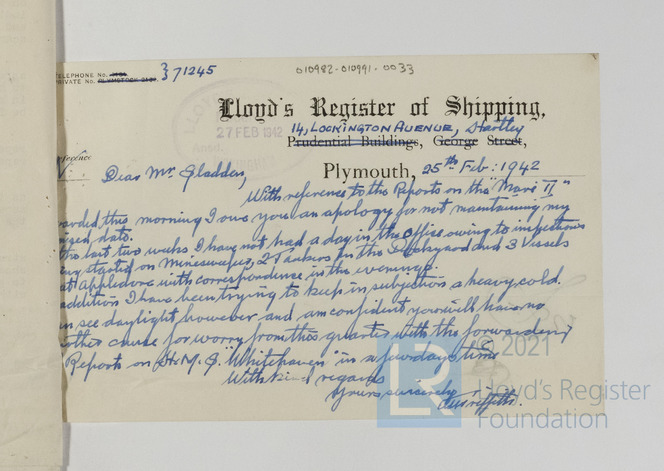 010982-010991-0033
TELEPHONE No.
PRIVATE No. PLYMSTOCK } 71245
Lloyd's Register of Shipping,
14, LOCKINGTON AVENUE, Hartley
Prudential Buildings, George Street,
Plymouth, 25th Feb: 1942
27 FEB 1942
Ansd.
Dear Mr. Gladden,
With reference to the Reports on the "Mavis II"
warded this morning I owe you an apology for not maintaining my
date.
the last two weeks I have not had a day in the office owing to inspections
being started on Minesweeper, 2 Tankers in the Dockyard and 3 Vessels
at Appledore with correspondence in the evenings.
addition I have been trying to keep in subjection a heavy cold.
n see daylight however and am confident you will have no
other cause for worry from this quarter with the forwarding
Reports on H.M.S. "Whitehaven" in a few days time
With kind regards
Yours sincerely
© 2021
LR
Lloyd's Register
Foundation